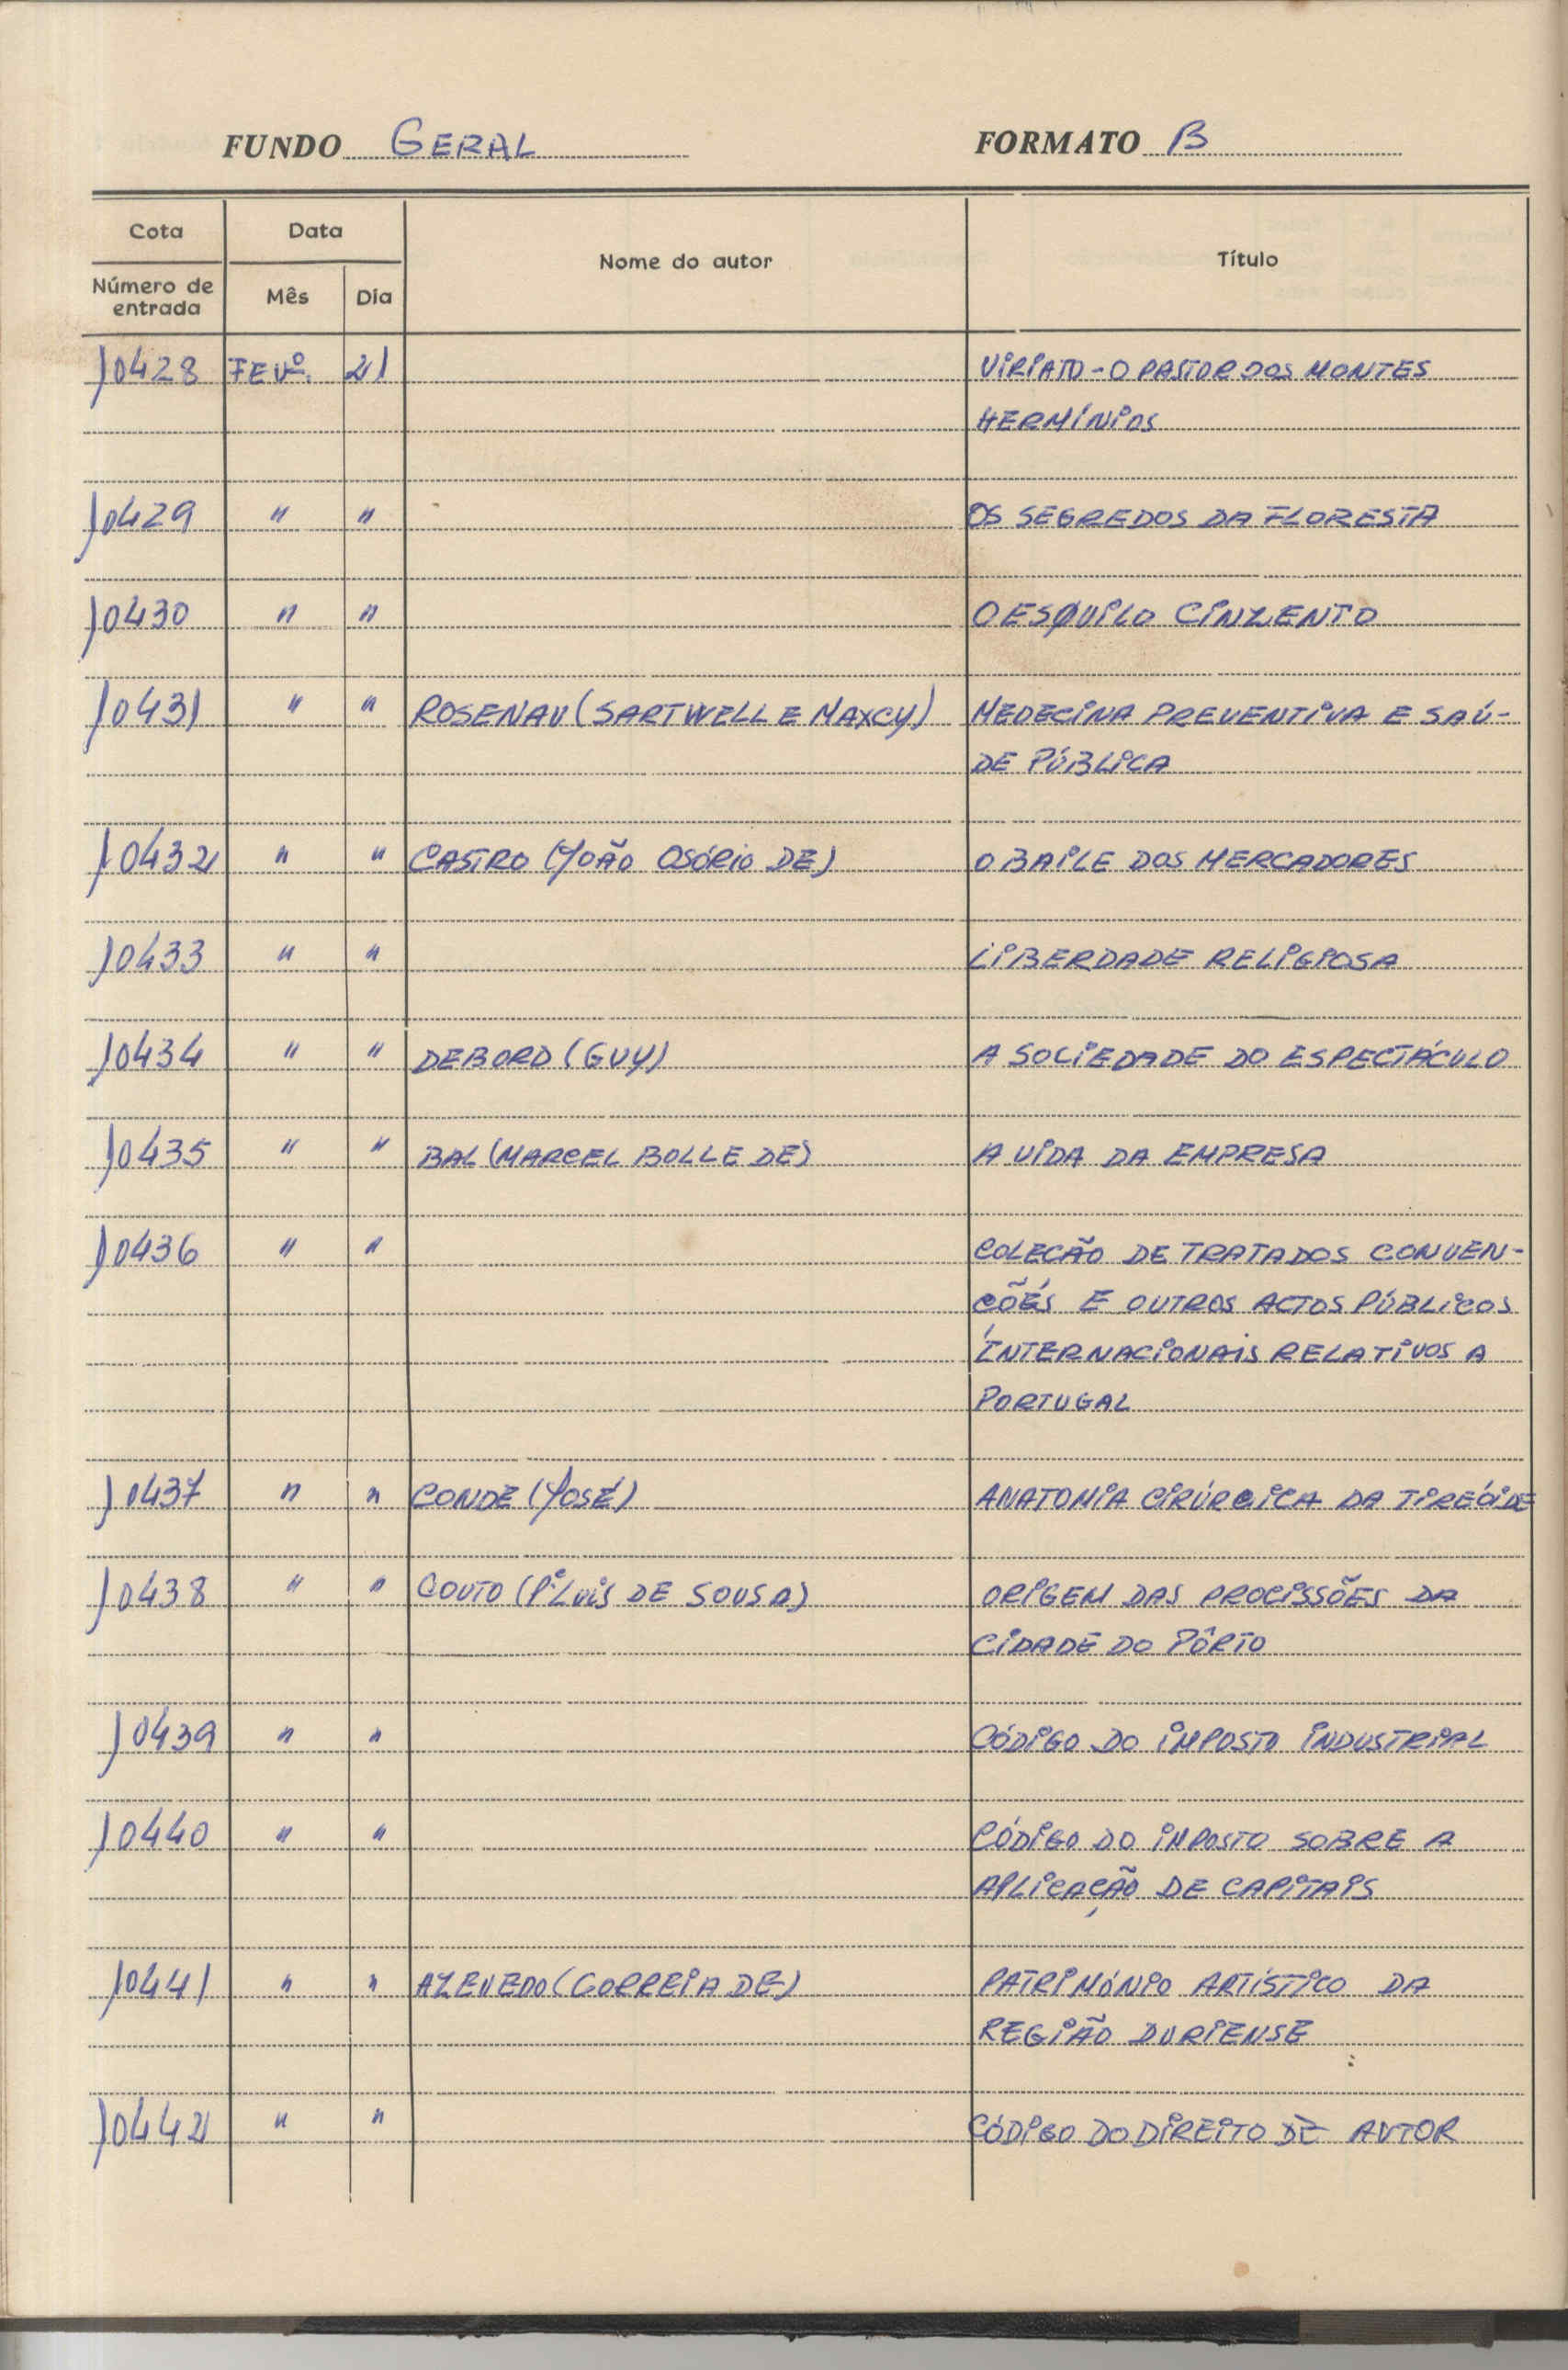 FUNDO GERAL FORMATO B
Cota Data Nome do autor Título
Número de entrada Mês Dia
10428 FEVº. 21 VIRIATO - O PASTOR DOS MONTES
HERMÍNIOS
10429 " " OS SEGREDOS DA FLORESTA
10430 " " O ESQUILO CINZENTO
10431 " " ROSENAU (SARTWELL E MAXCY) MEDECINA PREVENTIVA E SAÚ-
DE PÚBLICA
10432 " " CASTRO (JOÃO OSÓRIO DE) O BAILE DOS MERCADORES
10433 " " LIBERDADE RELIGIOSA
10434 " " DEBORD (GUY) A SOCIEDADE DO ESPECTÁCULO
10435 " " BAL (MARCEL BOLLE DE) A VIDA DA EMPRESA
10436 " " COLECÃO DE TRATADOS CONVEN-
ÇÕES E OUTROS ACTOS PÚBLICOS
INTERNACIONAIS RELATIVOS A
PORTUGAL
10437 " " CONDE (JOSÉ) ANATOMIA CIRÚRGICA DA TIREÓIDE
10438 " " COUTO (P. LUIS DE SOUSA) ORIGEM DAS PROCISSÕES DA
CIDADE DO PÔRTO
10439 " " CÓDIGO DO IMPOSTO INDUSTRIAL
10440 " " CÓDIGO DO IMPOSTO SOBRE A
APLICAÇÃO DE CAPITAIS
10441 " " AZEVEDO (CORREIA DE) PATRIMÓNIO ARTÍSTICO DA
REGIÃO DURIENSE
10442 " " CÓDIGO DO DIREITO DE AUTOR